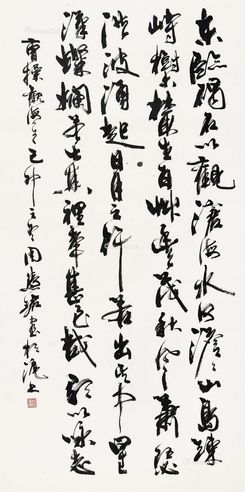 东臨碣石以觀滄海水何澹々山島竦
峙樹木叢生百草豐茂秋風蕭瑟
洪波涌起日月之行若出其中星
漢燦爛若出其裡幸甚至哉歌以咏志
曹操觀滄海己卯之冬周慧珺書於滬上